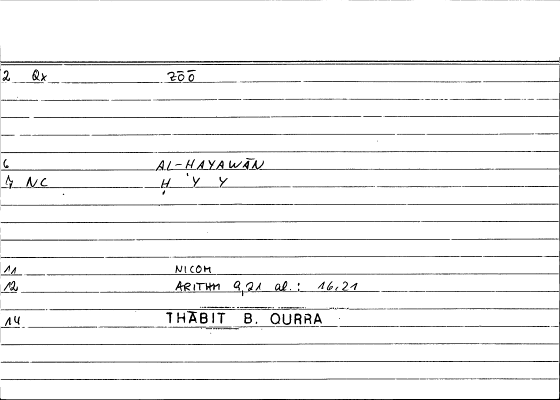 2 Qx ζῷο̄
6 AL-HAYAWĀN
7 NC Ḥ Y Y
11 NICOM
12 ARITHM 9,21 al.: 16,21
14 THĀBIT B. QURRA